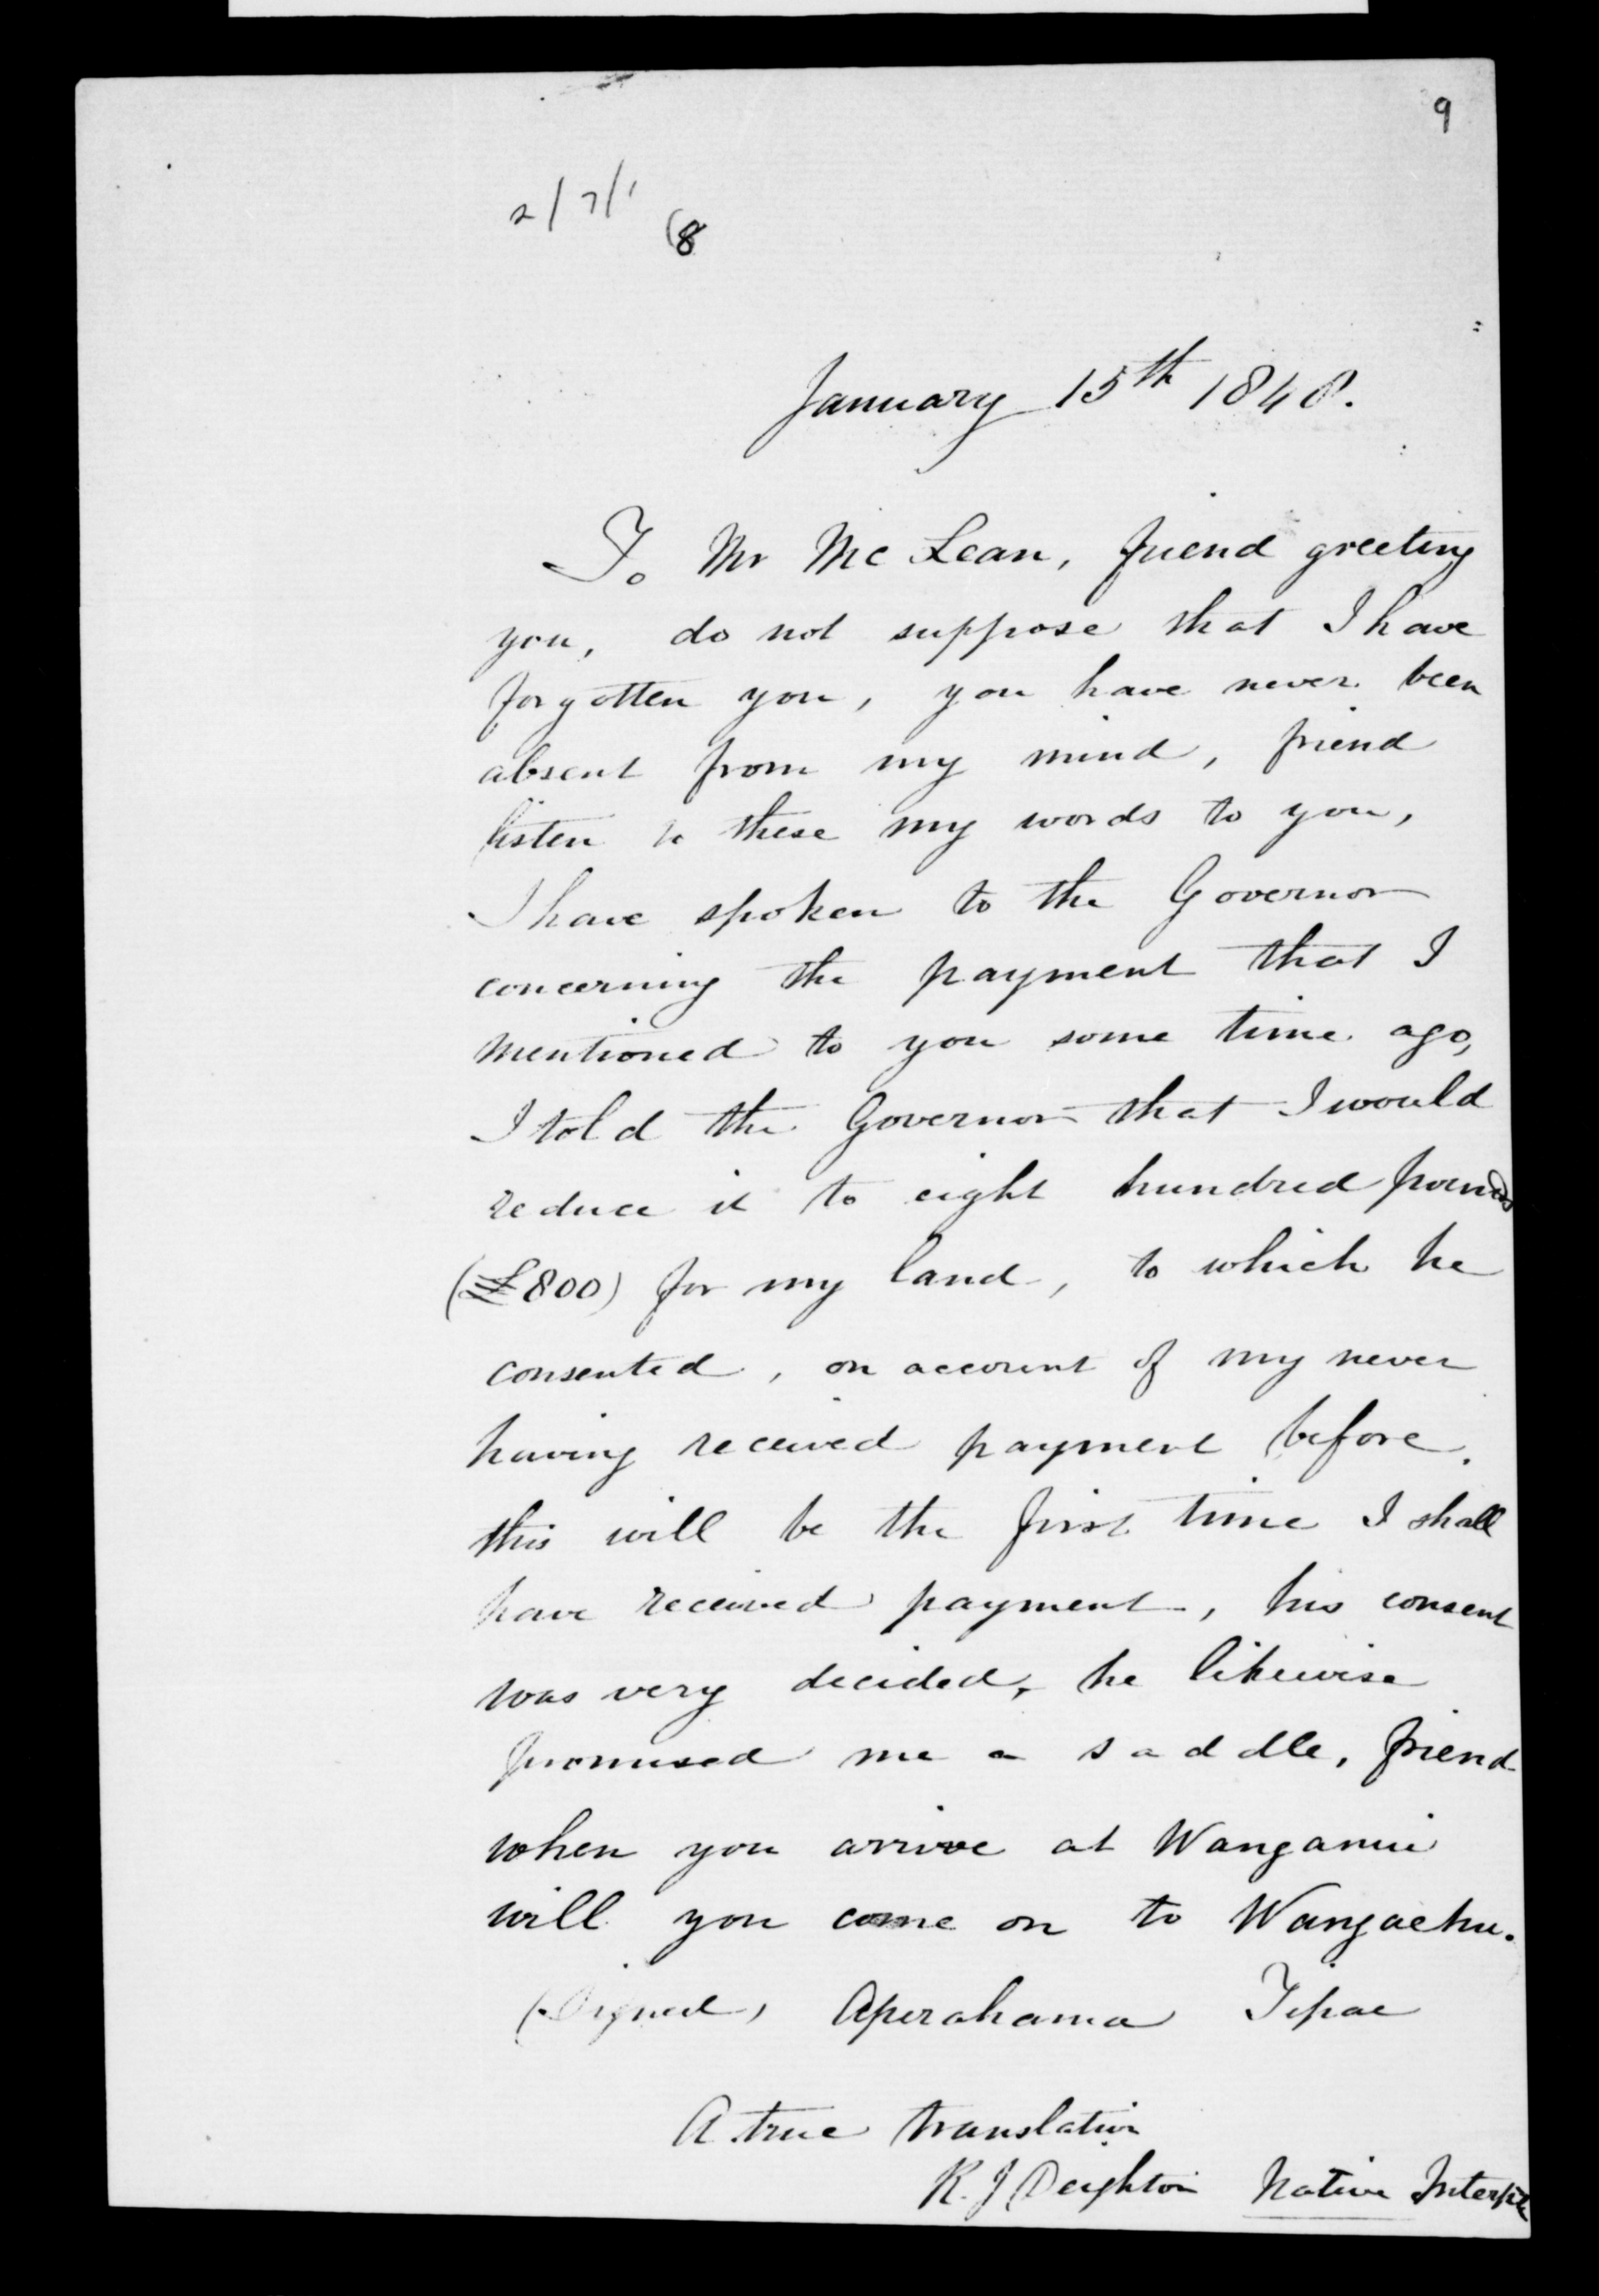 9
2/7/1
(8
January 15th 1848.
To Mr McLean, friend greeting
you, do not suppose that I have
forgotten you, you have never been
absent from my mind, friend
listen to these my words to you,
I have spoken to the Governor
concerning the payment that I
mentioned to you some time ago,
I told the Governor that I would
reduce it to eight hundred pounds
(£800) for my land, to which he
consented, on account of my never
having received payment before.
this will be the first time I shall
have received payment, his consent
was very decided, he likewise
promised me a saddle, friend
when you arrive at Wanganui
will you come on to Wangaehu.
(Signed, Aperahama Tipae
A true translation
R. J Deighton Native